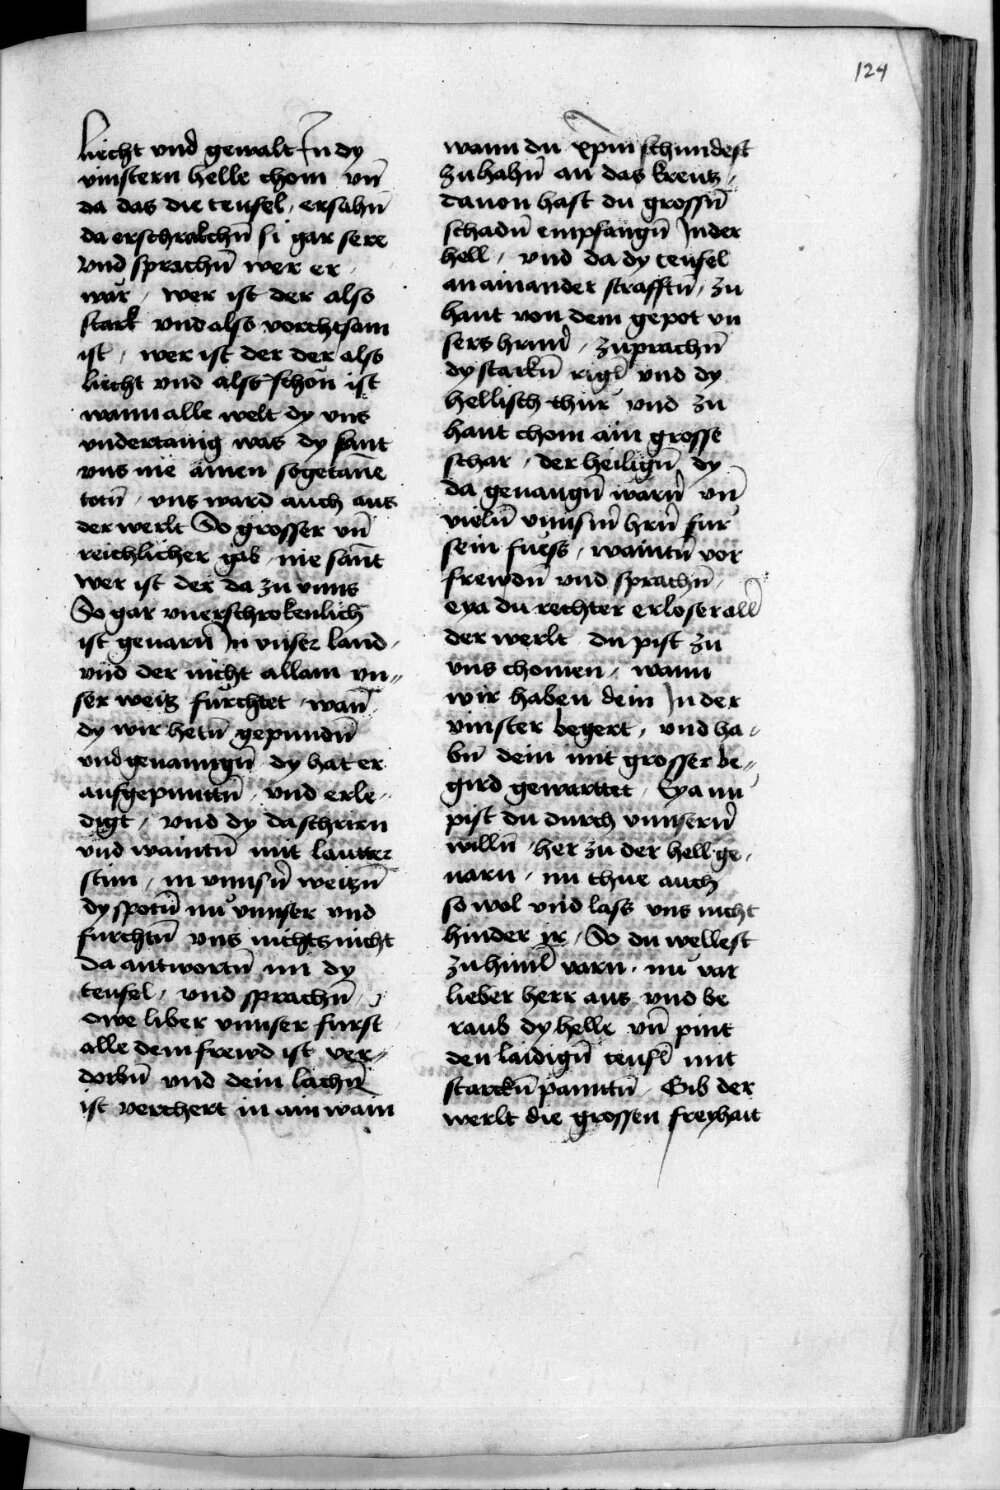 124
liecht vnd gewalt In dy
vinstern helle chom vn̄
da das die teufel, ersahn̄
da erschrakchn̄ si gar sere
vnd sprachn̄ wer er
wär, wer ist der also
stark vnd also vorchtsam
ist, wer ist der der also
liecht vnd also schön ist
wann alle welt dy vns
vndertanig was dy sant
vns nie ainen sogetāne
totn̄, vns ward auch aus
der werlt So grosser vn̄
reichlicher gab nie sān̄t
wer ist der da zu vnns
So gar vnerschrokenlich
ist geuarn̄ In vnser land,
vnd der nicht allain vn„
ser weitz fürchtet, wan̄
dy wir hetn̄ gepundn̄
vnd geuanngn̄ dy hat er
aufgepuntn̄, vnd erle„
digt, vnd dy da schrirn
vnd waintn̄ mit lautter
stim, in vnnsn̄ weitzn̄
dy spotn̄ nu vnnser vnd
furchtn̄ vns nichtsnicht
Da antwortn̄ im dy
teufel, vnd sprachn̄,
Owe liber vnnser furst
alle dein frewd ist ver„
dorbn̄ vnd dein lachn̄
ist verchert in ain wain
wann du xp̄m schundest
zu hahn̄ an das kreutz,
dauon hast du grossn̄
schadn̄ empfangn̄ In der
hell, vnd da dy teufel
an ainander strafftn̄, zu
hant von dem gepot vn
sers hrnn̄, zuprachn̄
dy starkn̄ rigl̄ vnd dy
hellisch thür vnd zu
hant chom ain grosse
schar, der heilign̄ dy
da geuangn̄ warn̄ vn̄
vieln̄ vnnsm̄ hrn̄ fur
sein fuess, waintn̄ vor
frewdn̄ vnd sprachn̄,
eya du rechter erloser all̄
der werlt du pist zu
vns chomen, wann
wir haben dein In der
vinster begert, vnd ha„
bn̄ dein mit grosser be„
gird gewarttet, Eya nu
pist du durch vnnsern̄
willn̄ her zu der hell ge„
uarn, nu thue auch
so wol vnd lass vns nicht
hinder ir, So du wellest
zu himl̄ varn, nu var
lieber herr aus vnd be
raub dy helle vn̄ pint
den laidign̄ teufl̄ mit
starckn̄ panntn̄, Gib der
werlt die grossen freyhait